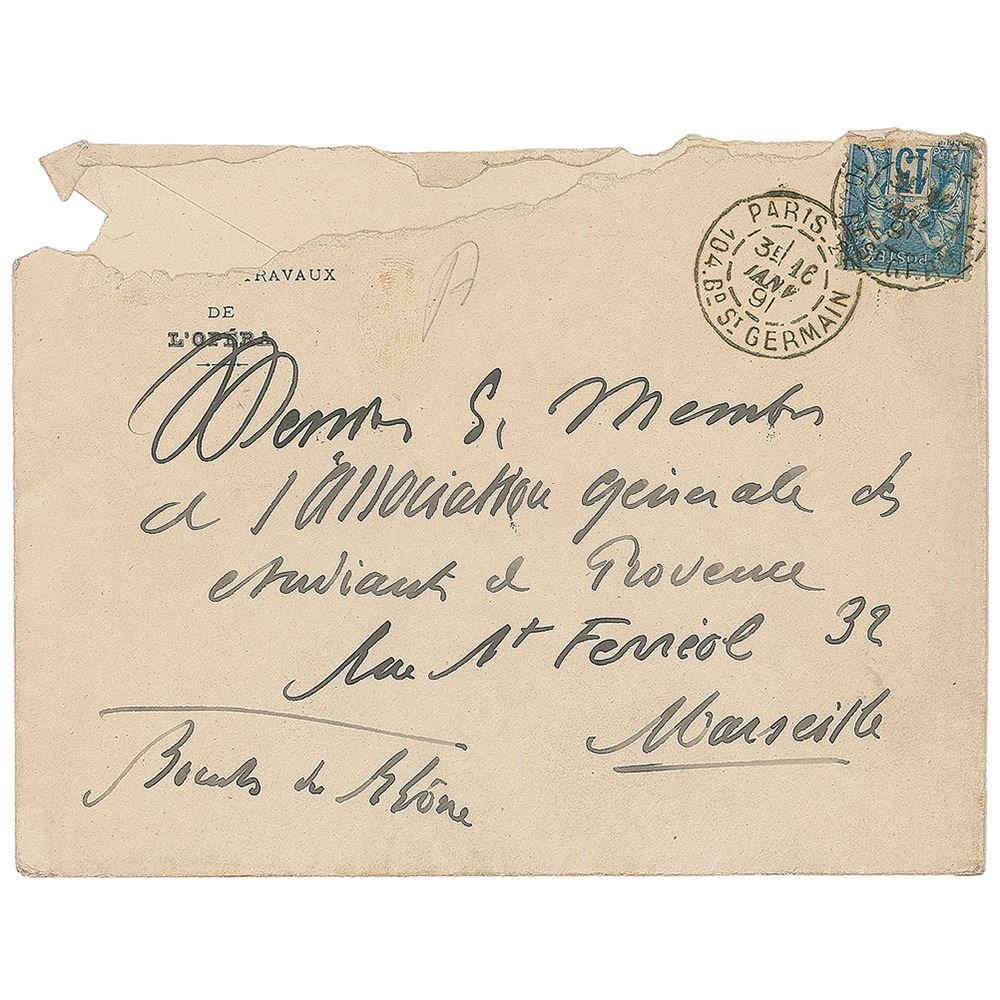 TRAVAUX
DE
L'OPÉRA
PARIS
104. BD ST GERMAIN
3E 16
JANV
91
15
POSTES
S, Membres
de l'Association générale des
étudiants de Provence
Rue St Ferréol 32
Marseille
Bouches du Rhône